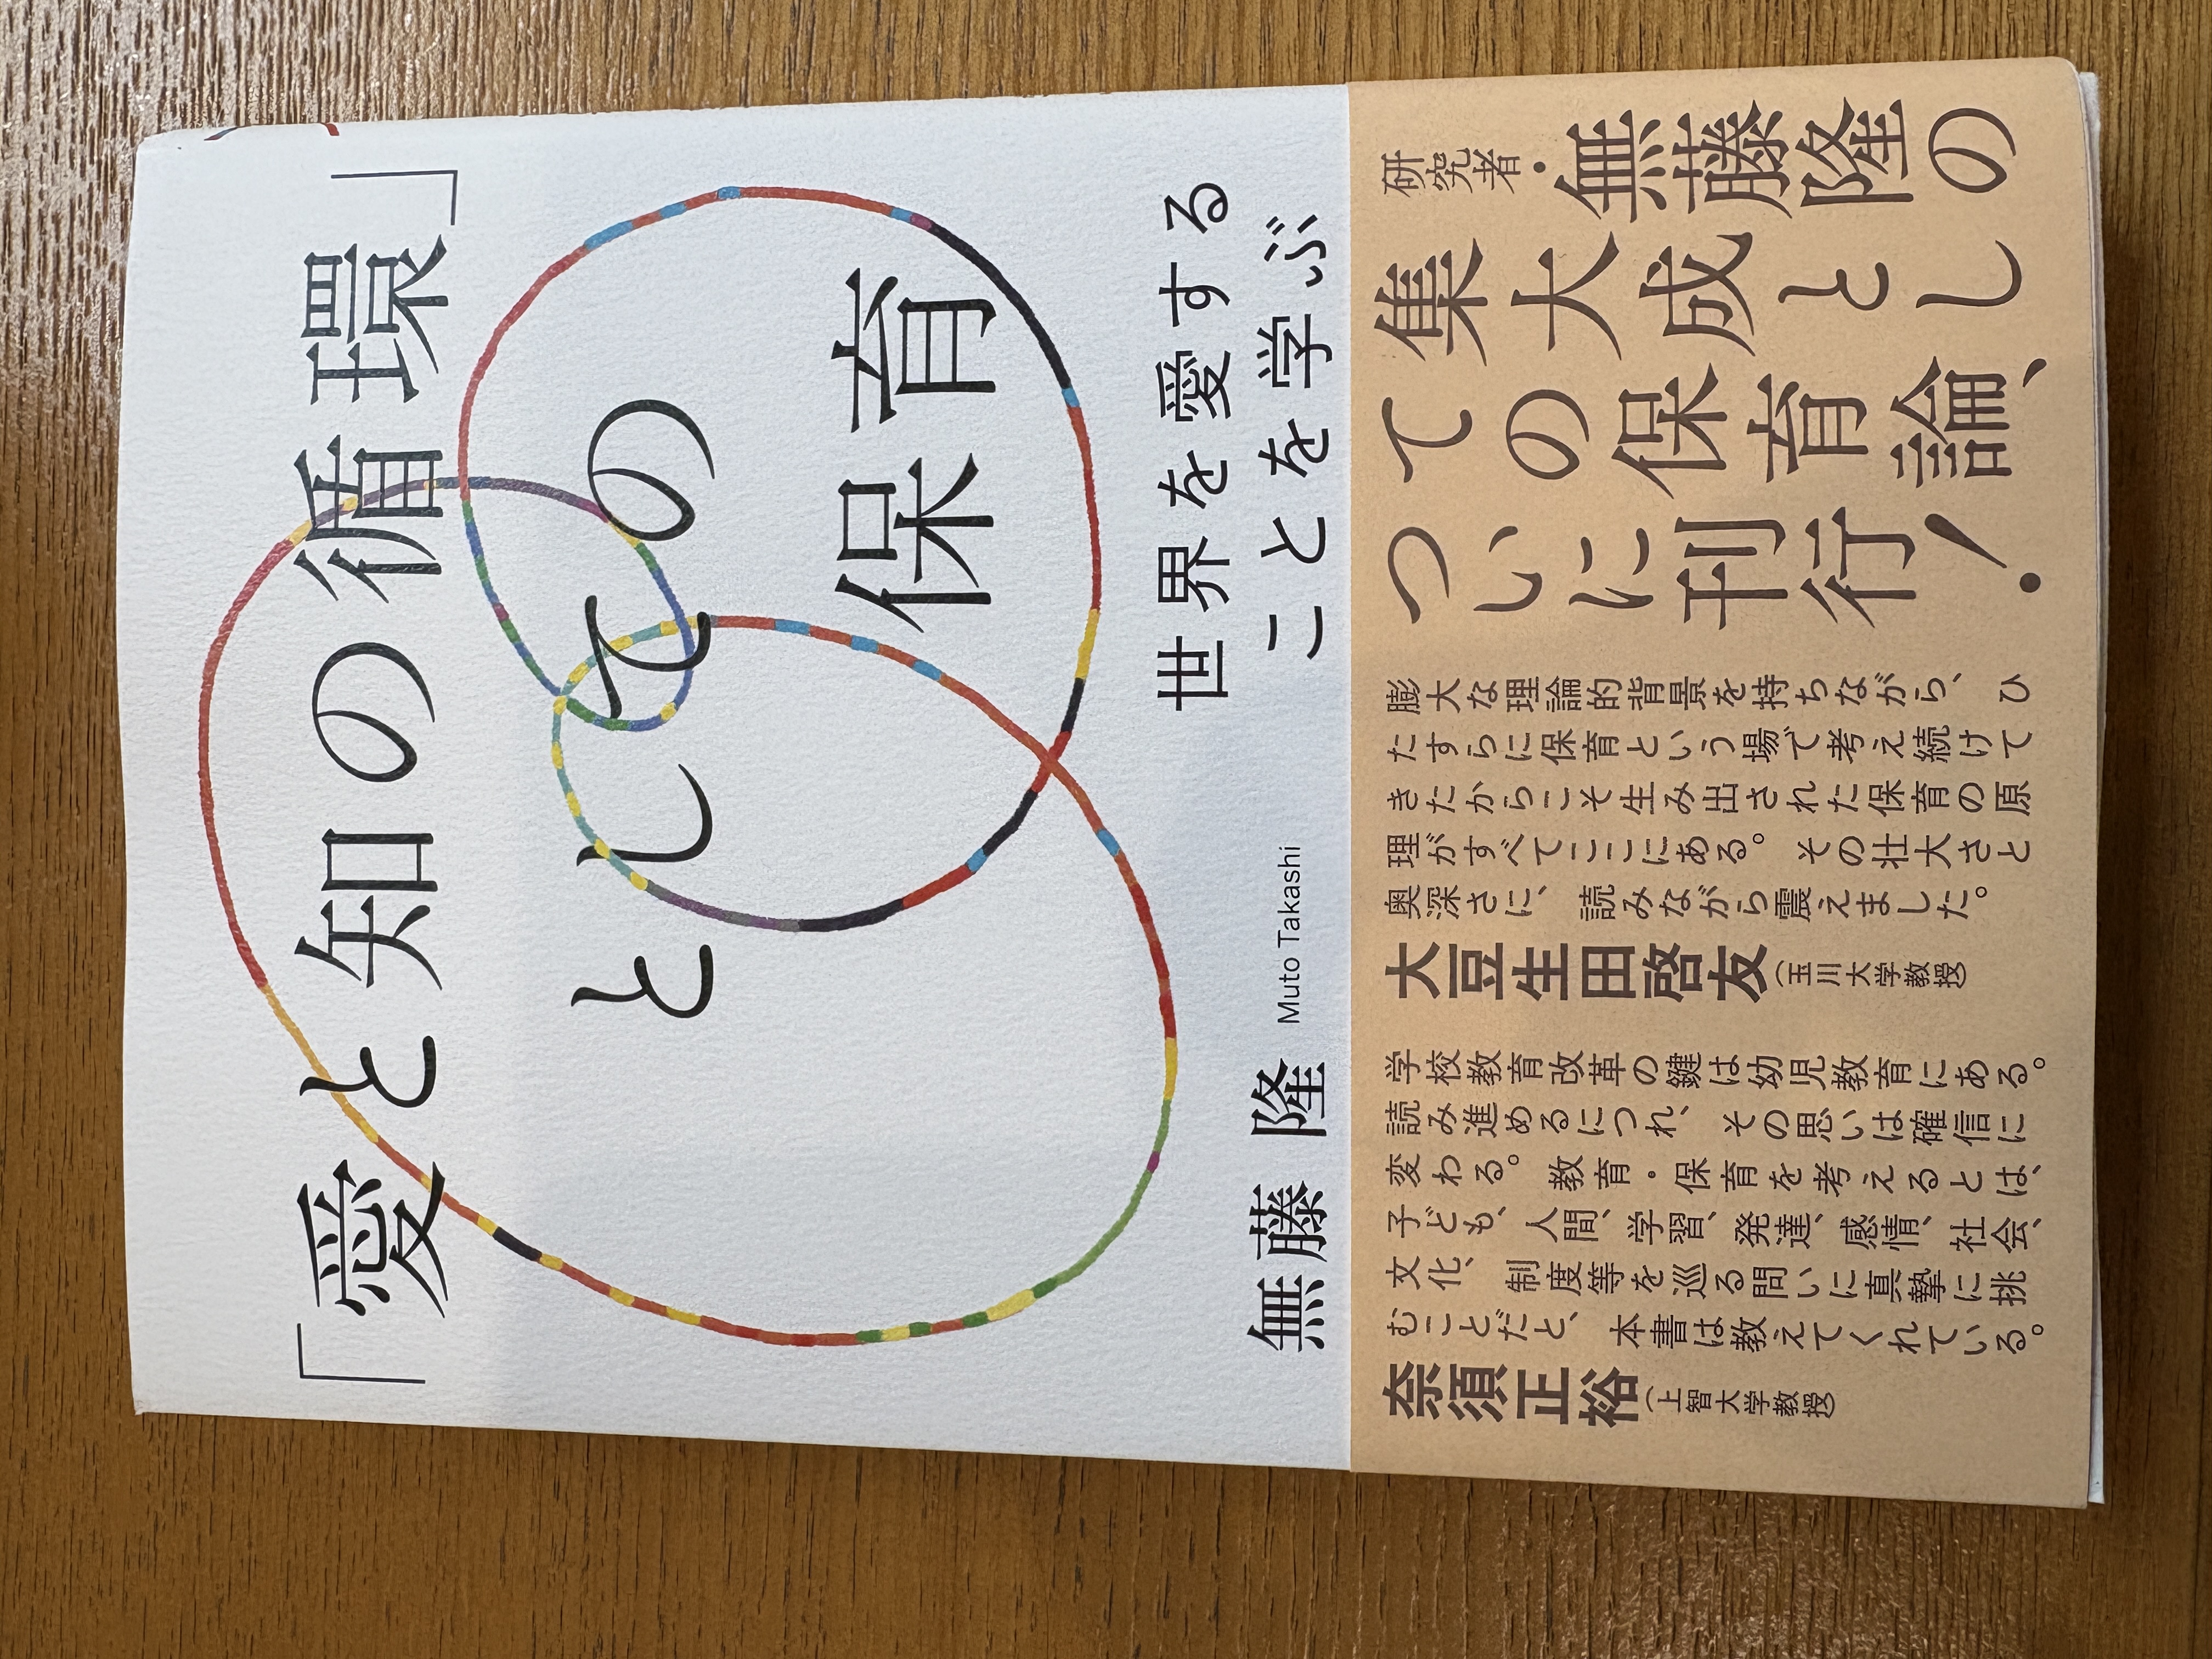 「愛と知の循環」
としての
保育
世界を愛する
ことを学ぶ
無藤 隆 Muto Takashi
研究者・無藤隆の
集大成とし
ての保育論、
ついに刊行!
膨大な理論的背景を持ちながら、ひ
たすらに保育という場で考え続けて
きたからこそ生み出された保育の原
理がすべてここにある。その壮大さと
奥深さに、読みながら震えました。
大豆生田啓友(玉川大学教授)
学校教育改革の鍵は幼児教育にある。
読み進めるにつれ、その思いは確信に
変わる。教育・保育を考えるとは、
子ども、人間、学習、発達、感情、社会、
文化、制度等を巡る問いに真摯に挑
むことだと、本書は教えてくれている。
奈須正裕(上智大学教授)